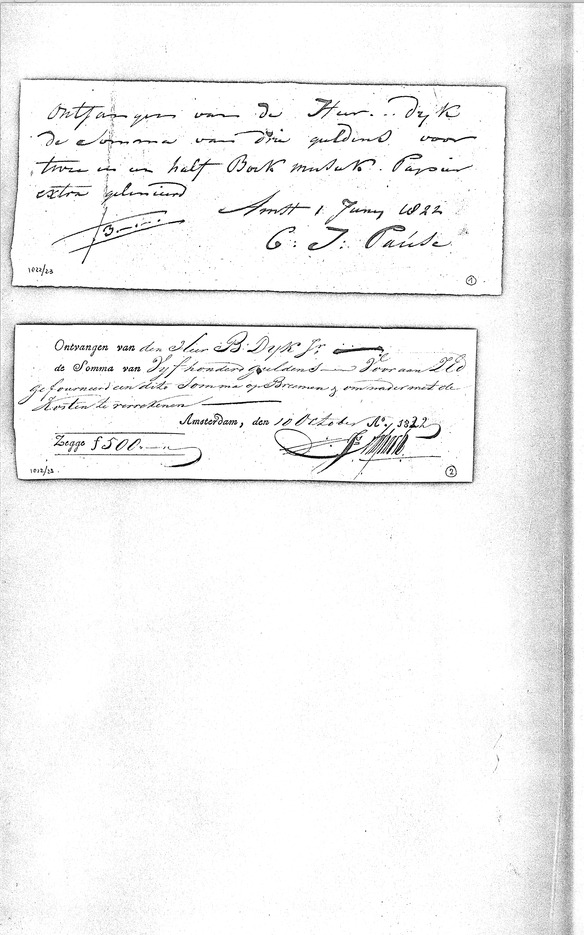 Ontfangen van de Heer .. Dyk
de Somma van drie guldens voor
twee en een half Boek musiek Papier
extra gelinieerd
Amst 1 Juny 1822
ƒ3.-.-
C: J: Paúse
1022/23
1
Ontvangen van den Heer B. Dyk Jr.
de Somma van Vyfhonderd guldens — Voor aan
gefourneerd een dito Somma op Bremen, om nader met de
Kosten te verrekenen
Amsterdam, den 10 October Ao. 1822
Zegge ƒ500.—
1022/23
2